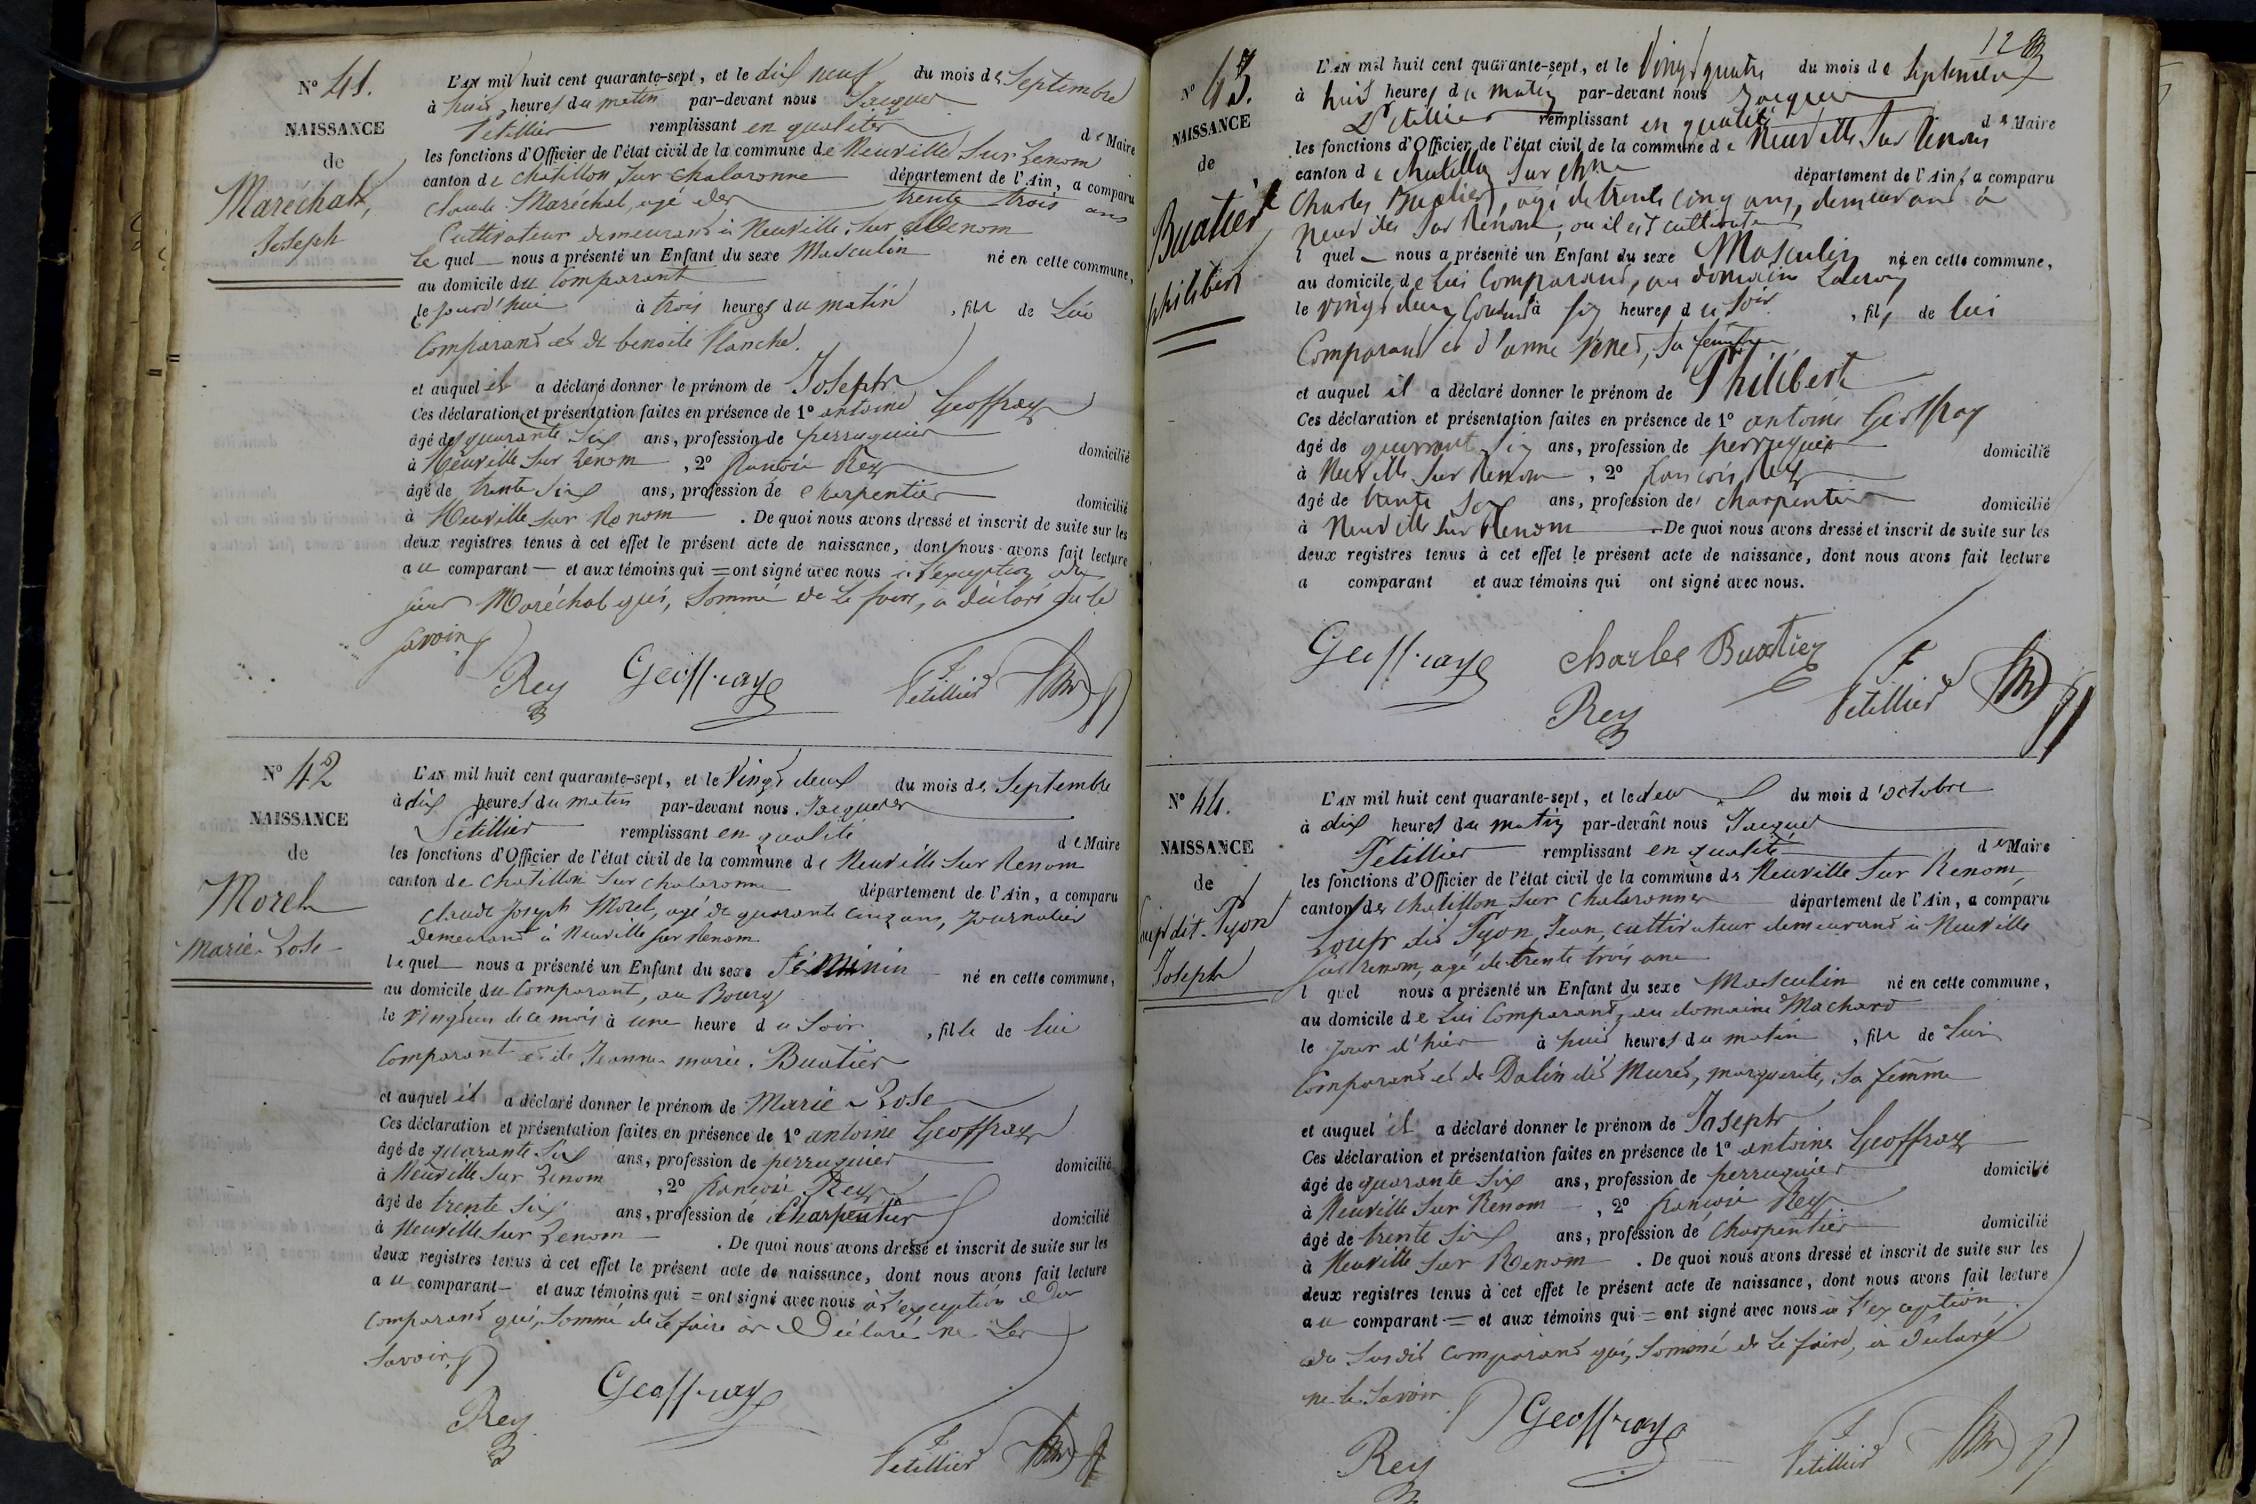 N° 41.
NAISSANCE
de
Maréchal,
Joseph
L'AN mil huit cent quarante-sept, et le dix neuf du mois de Septembre
à huit heures du matin par-devant nous Jacques
Petillier remplissant en qualité de Maire
les fonctions d'Officier de l'état civil de la commune de Neuville Sur Renom
canton de Chatillon Sur Chalaronne département de l'Ain, a comparu
Claude Maréchal, agé de trente trois ans
Cultivateur demeurant à Neuville Sur Renom
le quel nous a présenté un Enfant du sexe Masculin né en cette commune,
au domicile du Comparant
le jourd'hui à trois heures du matin, fils de Lui
Comparant et de benoite Planche.
et auquel il a déclaré donner le prénom de Joseph
Ces déclaration et présentation faites en présence de 1° antoine Geoffray
âgé de quarante Six ans, profession de perruquier domicilié
à Neuville Sur Renom, 2° françois Rey
âgé de trente Six ans, profession de Charpentier domicilié
à Neuville Sur Renom. De quoi nous avons dressé et inscrit de suite sur les
deux registres tenus à cet effet le présent acte de naissance, dont nous avons fait lecture
au comparant — et aux témoins qui = ont signé avec nous à l'exception du
Maréchal qui, Sommé de Le faire, a déclaré
Savoir
Rey Geoffray Petillier
N° 42
NAISSANCE
de
Morel
Marie-Rose
L'AN mil huit cent quarante-sept, et le Vingt deux du mois de Septembre
à dix heures du matin par-devant nous Jacques
Petillier remplissant en qualité de Maire
les fonctions d'Officier de l'état civil de la commune de Neuville Sur Renom
canton de Chatillon Sur Chalaronne département de l'Ain, a comparu
Claude Joseph Morel, agé de quarante cinq ans, Journalier
Demeurant à Neuville Sur Renom
le quel nous a présenté un Enfant du sexe Féminin né en cette commune,
au domicile du Comparant, au Bourg
le de ce mois à une heure du Soir, fille de lui
Comparant et de Jeanne marie Buatier
et auquel il a déclaré donner le prénom de Marie Rose
Ces déclaration et présentation faites en présence de 1° antoine Geoffray
âgé de quarante Six ans, profession de perruquier domicilié
à Neuville Sur Renom, 2° françois Rey
âgé de trente Six ans, profession de Charpentier domicilié
à Neuville Sur Renom. De quoi nous avons dressé et inscrit de suite sur les
deux registres tenus à cet effet le présent acte de naissance, dont nous avons fait lecture
au comparant — et aux témoins qui = ont signé avec nous à l'exception du
Comparant qui, Sommé de Le faire a Déclaré ne Le
Savoir
Rey Geoffray Petillier
N° 43.
NAISSANCE
de
Buatier
philibert
L'AN mil huit cent quarante-sept, et le Vingt quatre du mois de Septembre
à huit heures du matin par-devant nous Jacques
Petillier remplissant en qualité de Maire
les fonctions d'Officier de l'état civil de la commune de Neuville Sur Renom
canton de Chatillon Sur Chne département de l'Ain, a comparu
Charles Buatier, agé de trente cinq ans, demeurant à
Neuville Sur Renom, ou il est cultivateur
l quel nous a présenté un Enfant du sexe Masculin né en cette commune,
au domicile de Lui Comparant, au domaine
le vingt deux Courant à six heures du Soir, fils de lui
Comparant et d'anne Venet, Sa femme
et auquel il a déclaré donner le prénom de Philibert
Ces déclaration et présentation faites en présence de 1° antoine Geoffray
âgé de quarant Six ans, profession de perruquier domicilié
à Neuville Sur Renom, 2° françois Rey
âgé de trente Six ans, profession de charpentier domicilié
à Neuville Sur Renom. De quoi nous avons dressé et inscrit de suite sur les
deux registres tenus à cet effet le présent acte de naissance, dont nous avons fait lecture
a comparant et aux témoins qui ont signé avec nous.
Geoffray Charles Buatier
Rey Petillier
N° 44.
NAISSANCE
de
dit Pyon
Joseph
L'AN mil huit cent quarante-sept, et le deux du mois d'octobre
à dix heures du matin par-devant nous Jacques
Petillier remplissant en qualité de Maire
les fonctions d'Officier de l'état civil de la commune de Neuville Sur Renom,
canton de Chatillon Sur Chalaronne département de l'Ain, a comparu
dit Pyon, Jean, cultivateur demeurant à Neuville
Sur renom, agé de trente trois ans
l quel nous a présenté un Enfant du sexe Masculin né en cette commune,
au domicile de Lui Comparant, au domaine Machard
le jour d'hier à huit heures du matin, fils de Lui
Comparant et de Dalin dit Muret, marguerite, Sa femme
et auquel il a déclaré donner le prénom de Joseph
Ces déclaration et présentation faites en présence de 1° antoine Geoffray
âgé de quarante Six ans, profession de perruquier domicilié
à Neuville Sur Renom, 2° françois Rey
âgé de trente Six ans, profession de Charpentier domicilié
à Neuville Sur Renom. De quoi nous avons dressé et inscrit de suite sur les
deux registres tenus à cet effet le présent acte de naissance, dont nous avons fait lecture
au comparant = et aux témoins qui = ont signé avec nous à l'exception
du Susdit Comparant qui, Sommé de Le faire, a déclaré
ne le Savoir
Rey Geoffray Petillier